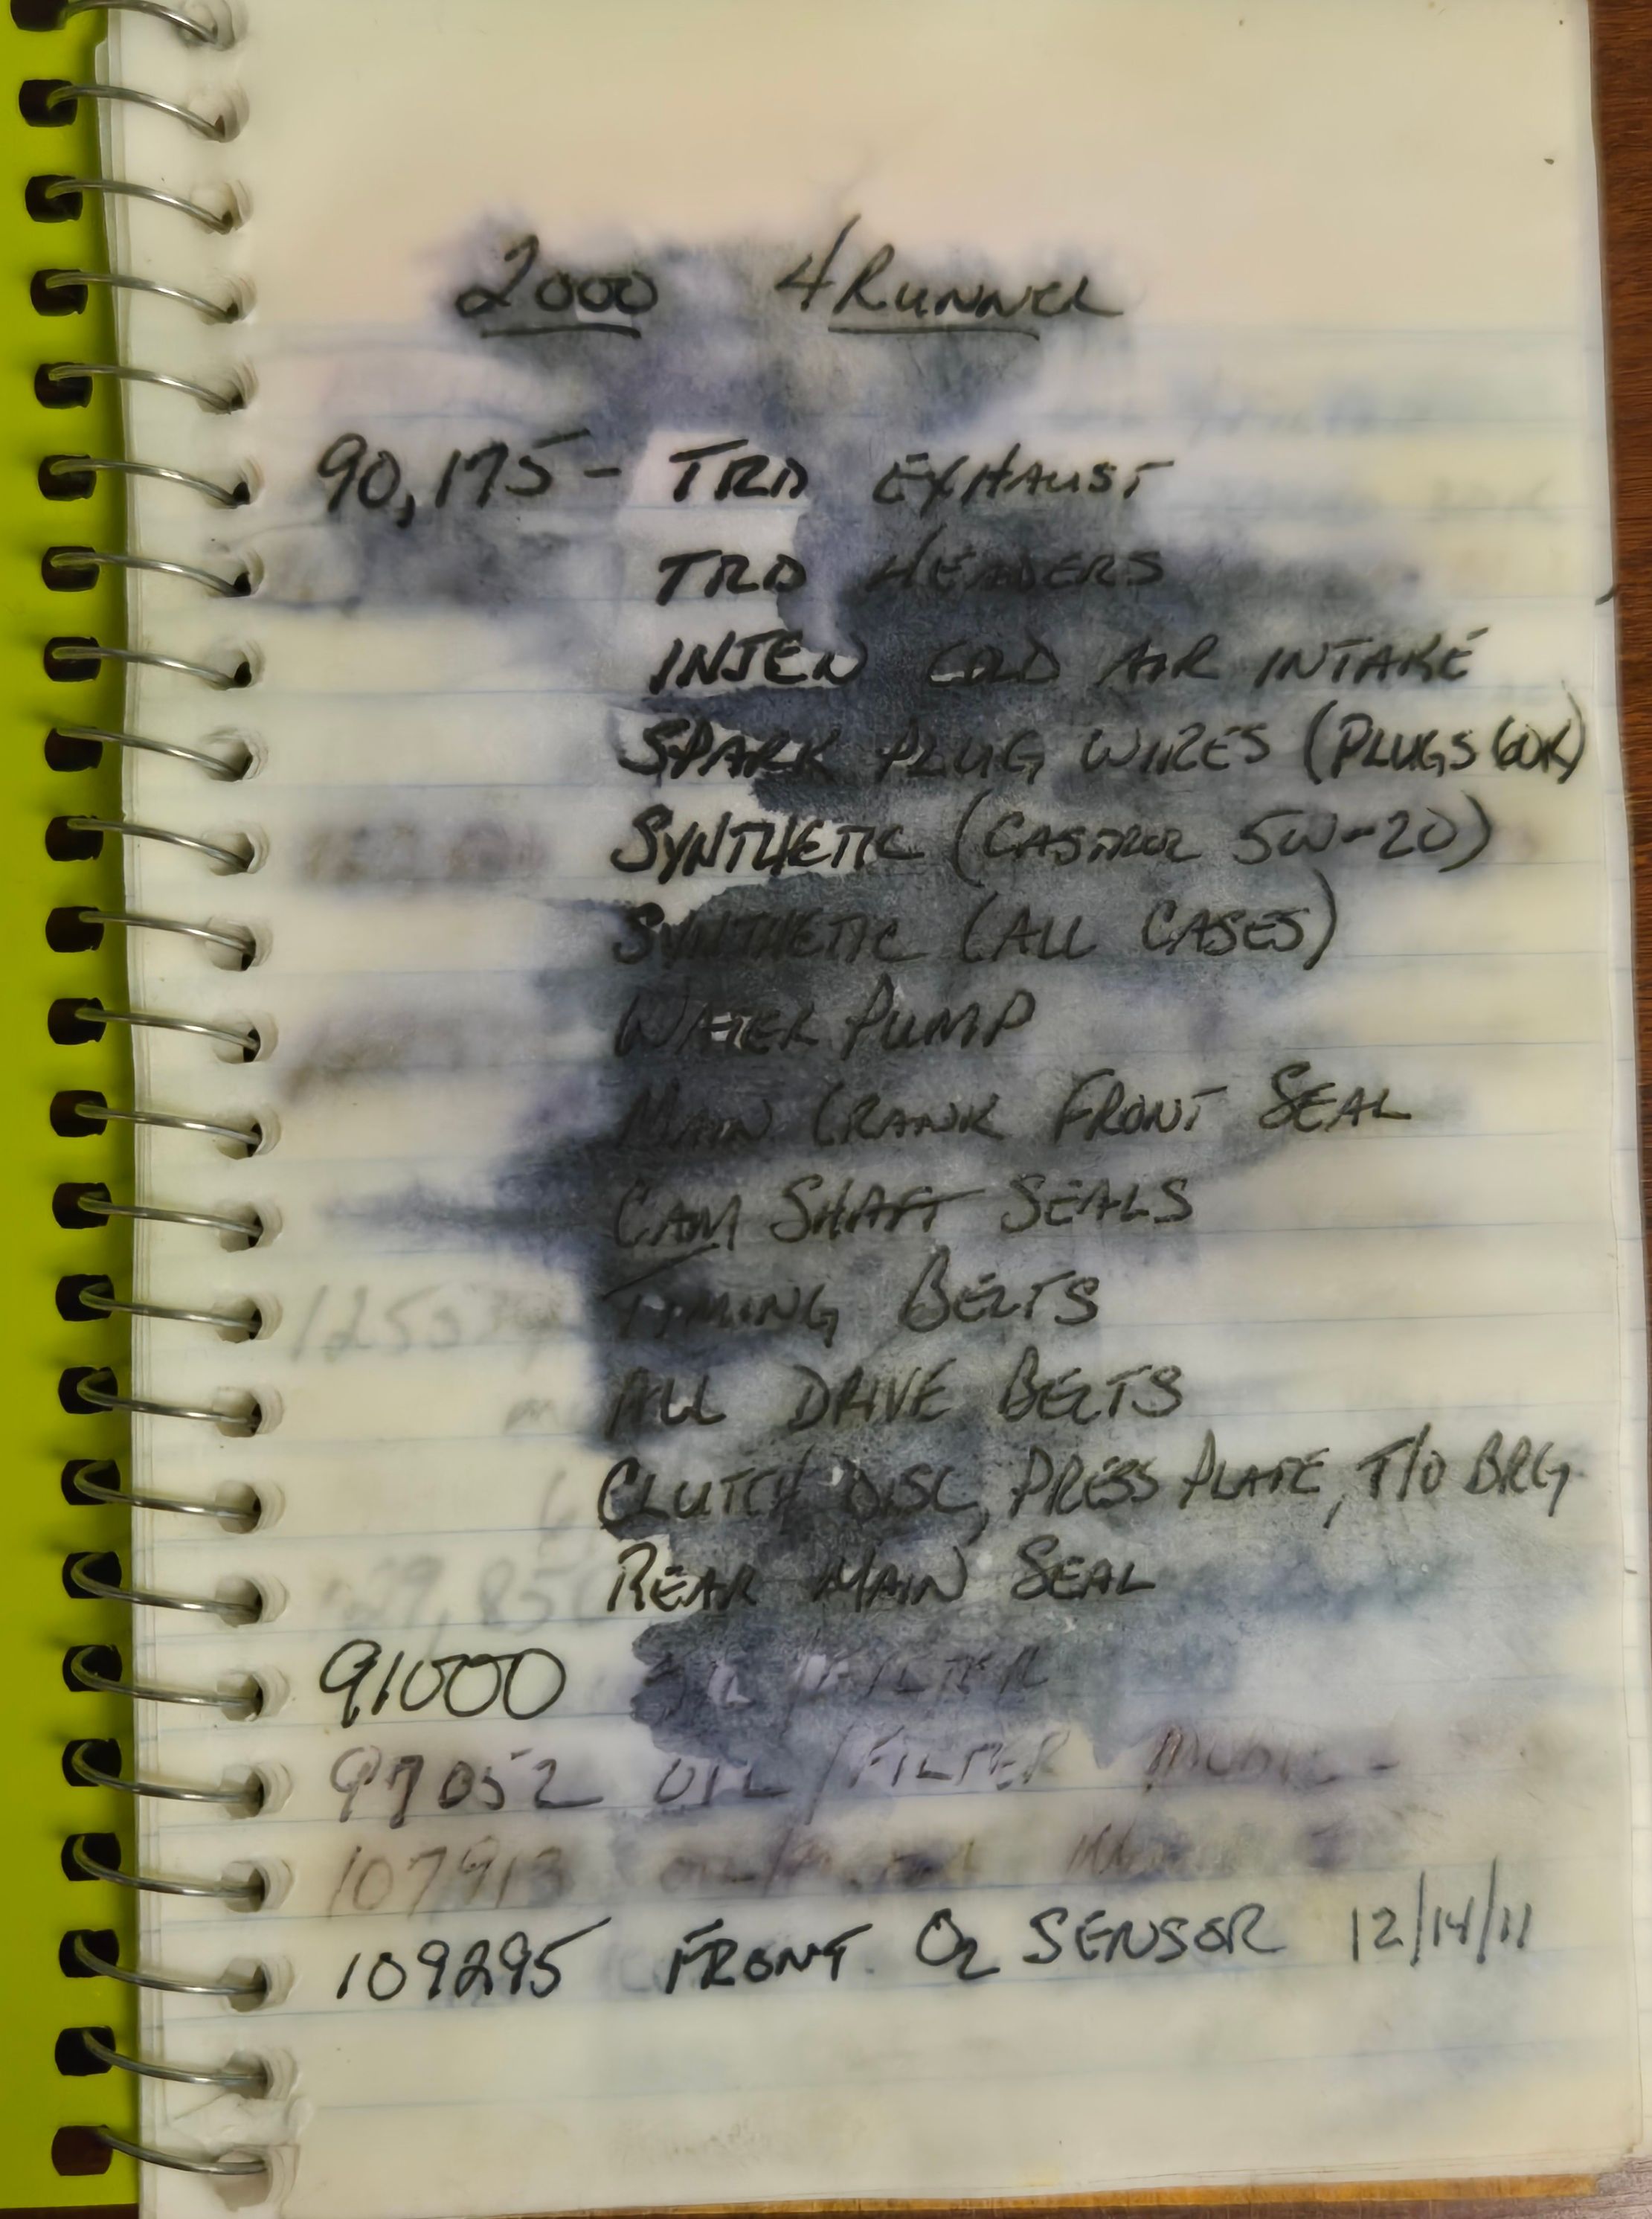 2000 4RUNNER
90,175 - TRD EXHAUST
TRD HEADERS
INJEN COLD AIR INTAKE
SPARK PLUG WIRES (PLUGS 60K)
SYNTHETIC (CASTROL 5W-20)
SYNTHETIC (ALL CASES)
WATER PUMP
MAIN CRANK FRONT SEAL
CAM SHAFT SEALS
TIMING BELTS
ALL DRIVE BELTS
CLUTCH DISC, PRESS PLATE, T/O BRG
REAR MAIN SEAL
91000 FILTER
97052 OIL/FILTER
107913
109295 FRONT O2 SENSOR 12/14/11